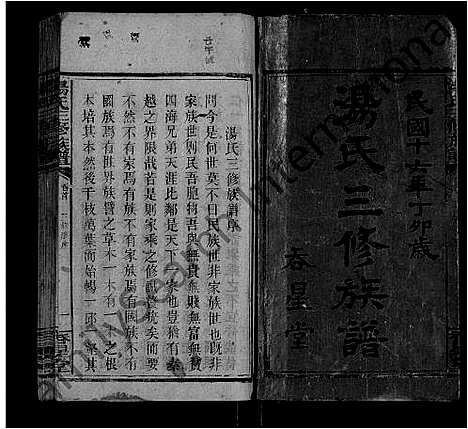 民國十六年丁卯歲
湯氏三修族譜
吞星堂
湯氏三修族譜序
問今是何世莫不曰民族世非家族世也既非
家族世則民吾胞物吾與無貴無賤無富無貧
四海兄弟天涯比鄰是天下一家也豈猶有秦
越之界限哉若是則家乘之修
不然不有家焉有族不有家族焉有國族不有
國族焉有世界族譬之草木一有一之根
本培其本然後千枝萬葉而始暢一邱
湯氏三修族譜
卷首